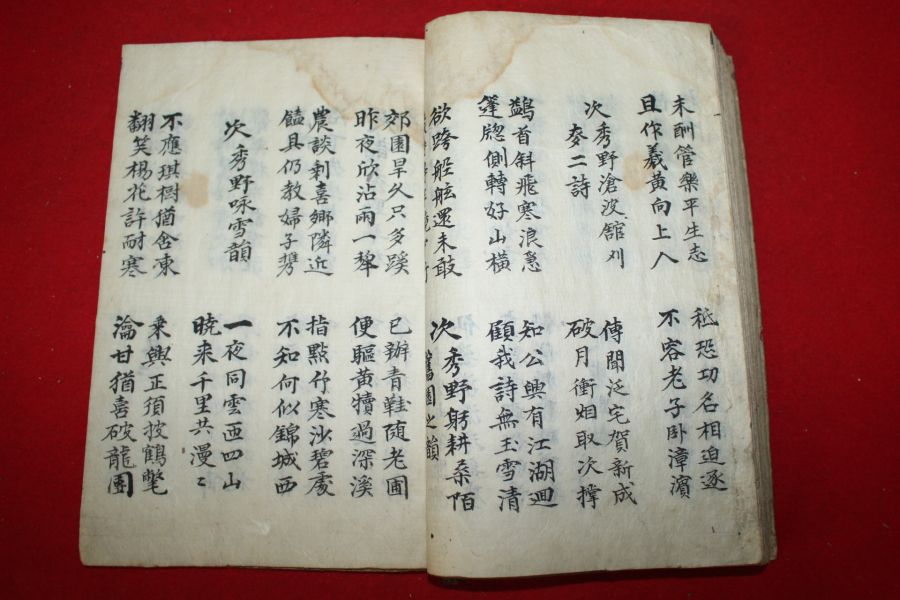 未酬管樂平生志
且作羲黃向上人
秪恐功名相迫逐
不容老子卧漳濱
次秀野滄波舘刈
麥二詩
傳聞泛宅賀新成
破月衝烟取次撑
鷁首斜飛寒浪急
篷牕側轉好山橫
知公興有江湖迥
顧我詩無玉雪清
欲跨舩舷還未敢
次秀野躬耕桑陌
舊園之韻
郊園旱久只多蹊
昨夜欣沾雨一犂
已辦青鞋随老圃
便驅黃犢過深溪
農談剩喜鄉隣近
饁具仍教婦子携
指點竹寒沙碧處
不知何似錦城西
次秀野咏雪韻
一夜同雲匝四山
曉来千里共漫〻
不應琪樹猶含凍
翻笑楊花許耐寒
乘興正須披鶴氅
瀹甘猶喜破龍團